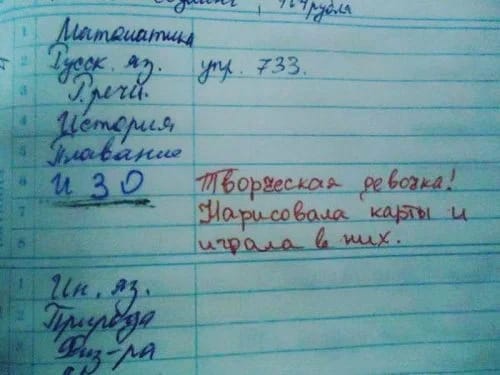 4 рубля
Математика
Русск. яз. упр. 733.
Р.речи.
История
Плавание
ИЗО Творческая девочка!
Нарисовала карты и
играла в них.
Ин. яз.
Природа
Физ-ра